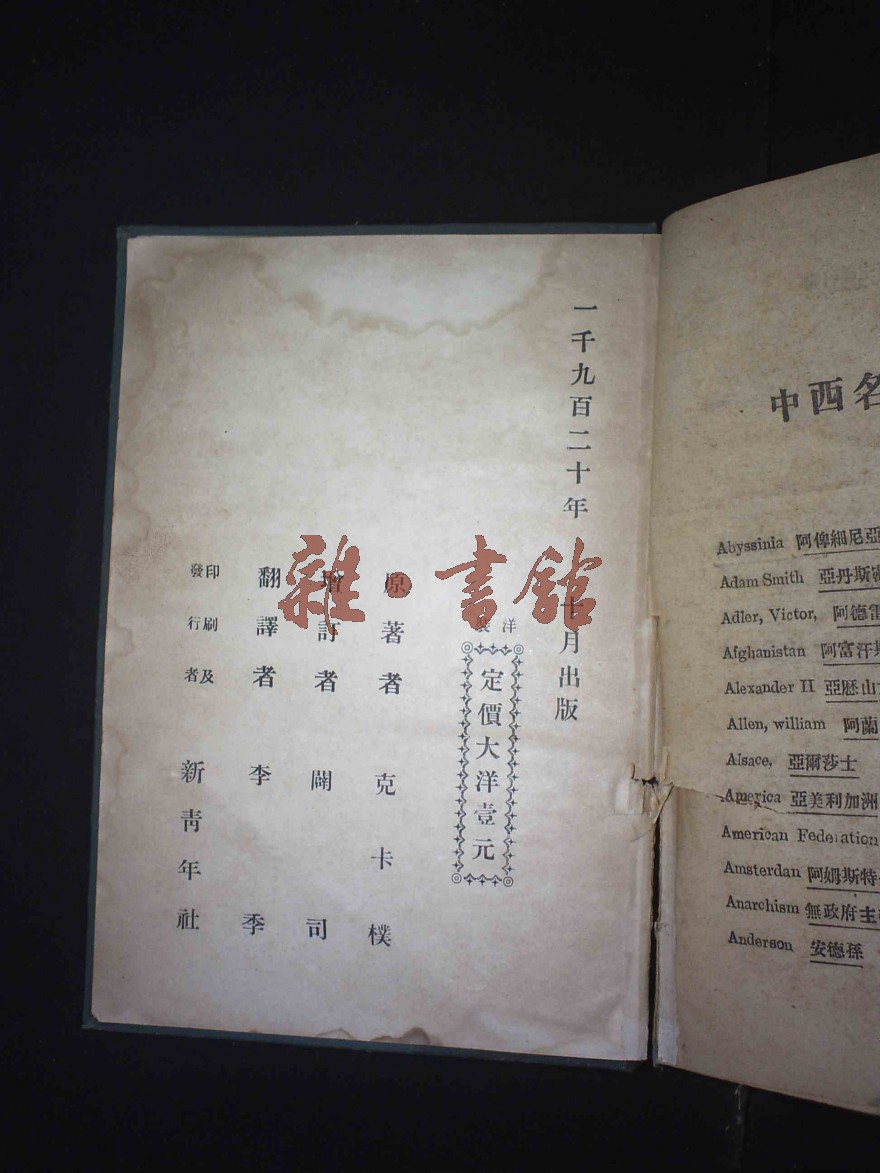 一千九百二十年十月出版
洋裝
定價大洋壹元
原著者 克卡樸
增訂者 闢司
翻譯者 李季
印刷及
發行者
新靑年社
雜·書館
中西名
Abyssinia 阿俾細尼亞
Adam Smith 亞丹斯密
Adler, Victor, 阿德雷
Afghanistan 阿富汗斯
Alexander II 亞歷山
Allen, william 阿蘭
Alsace, 亞爾莎士
America 亞美利加洲
American Federation
Amsterdan 阿姆斯特
Anarchism 無政府主
Anderson 安德孫